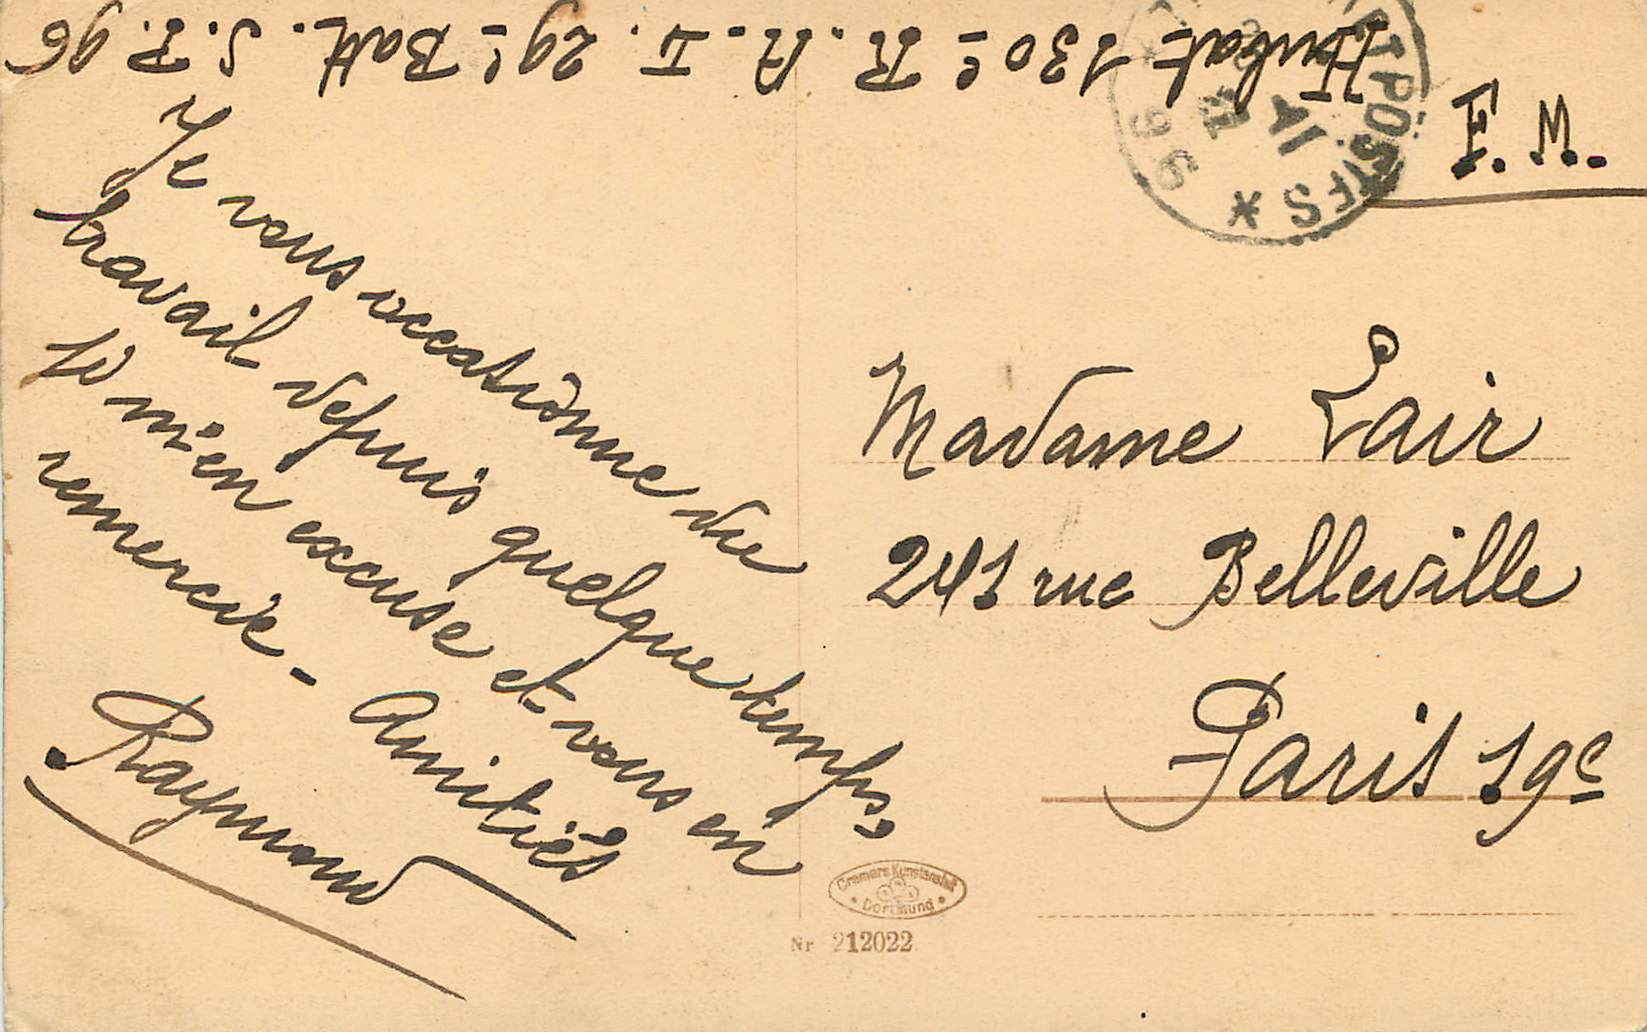 130e R.A.L. 29e Batt. S.P. 96
F.M.
ET POSTES *
96
Je vous occasionne du
travail depuis quelque temps.
Je m'en excuse et vous en
remercie - Amitiés
Raymond
Madame Lair
241 rue Belleville
Paris 19e
Cramers Kunstanstalt
• Dortmund •
Nr 212022